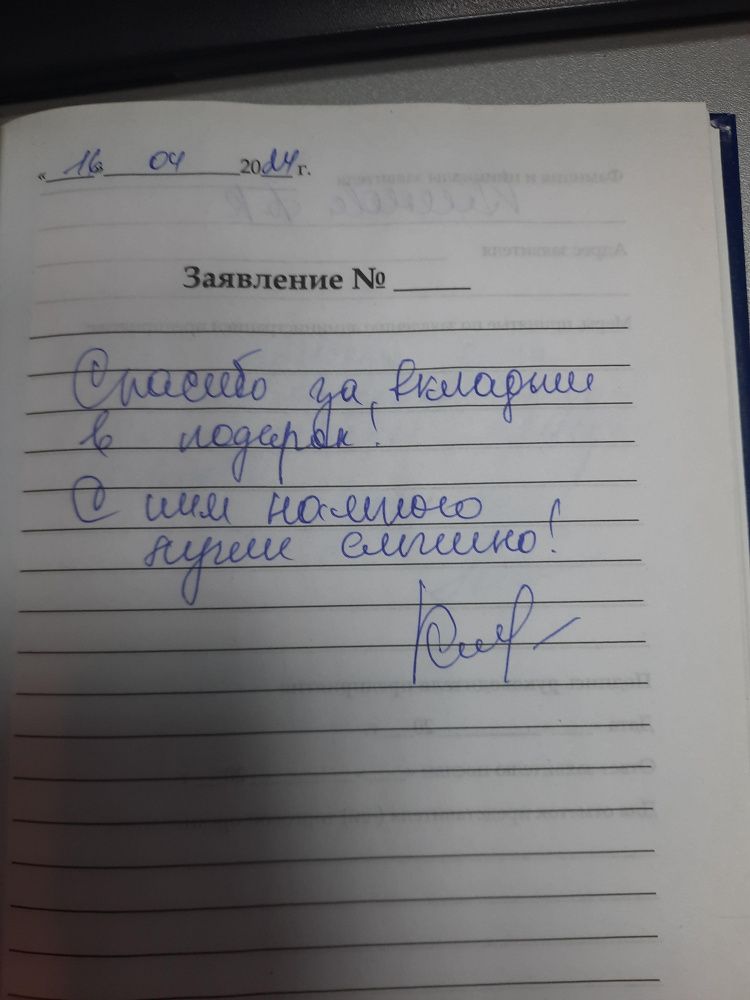 « 16 » 04 2024 г.
Заявление № ______
Спасибо за вкладыши
в подарок!
С ним намного
лучше слышно!